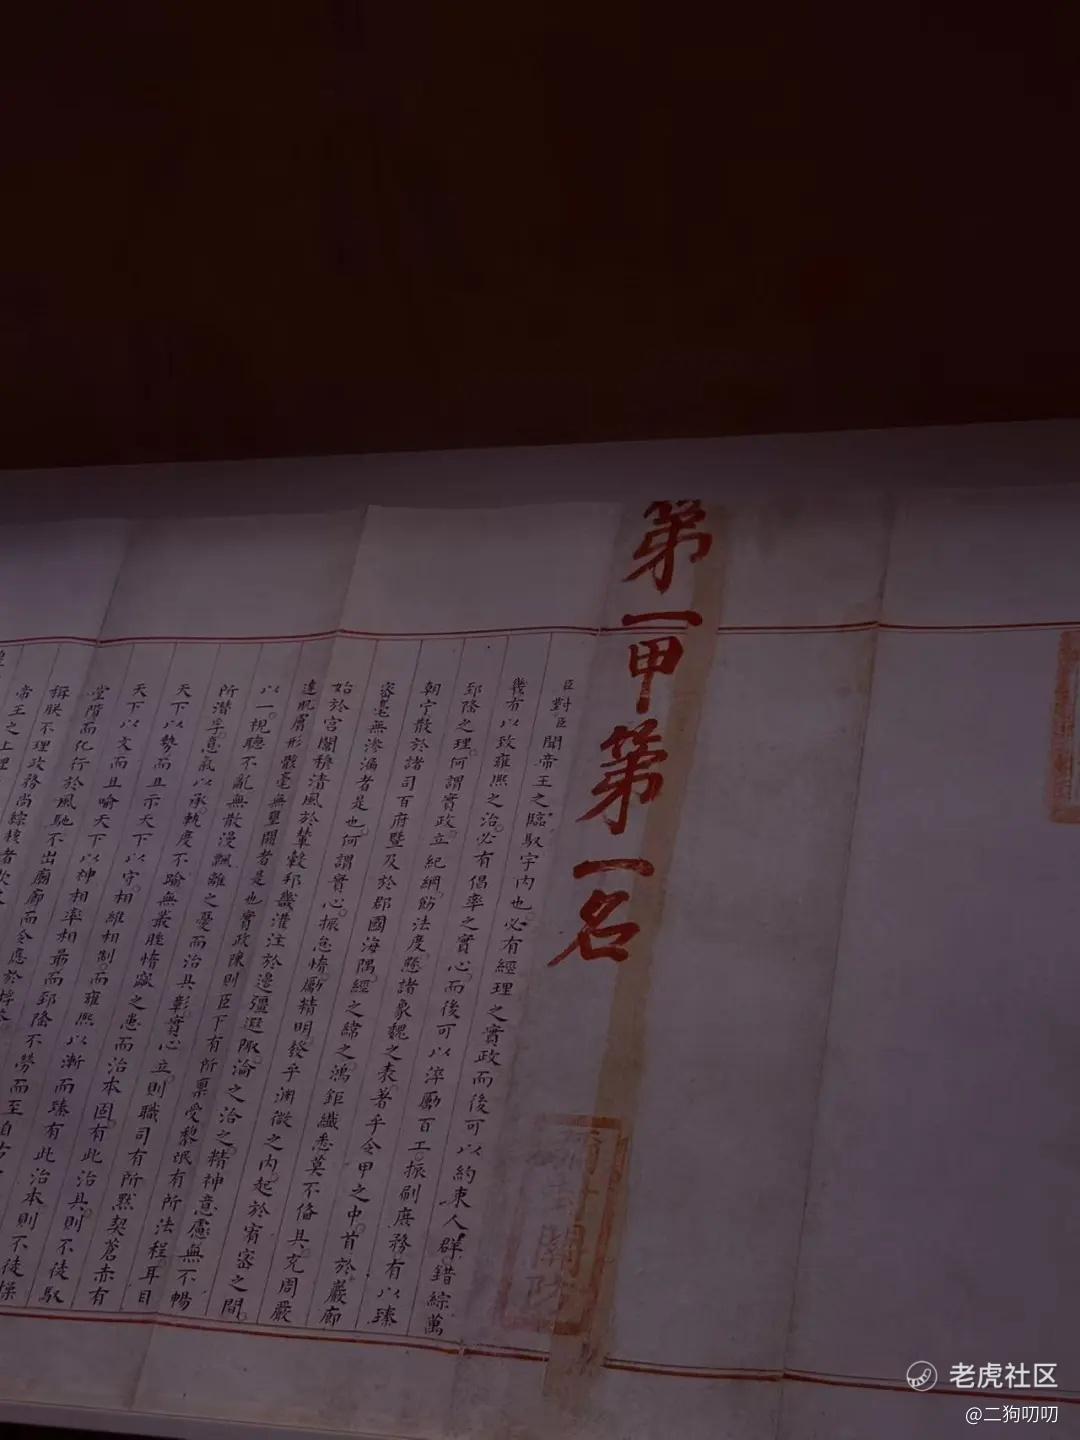 第一甲第一名
臣對臣聞帝王之臨馭宇内也必有經理之實政而後可以約束人群錯綜萬
幾有以致雍熙之治必有倡率之實心而後可以淬勵百工振刷庶務有以臻
郅隆之理何謂實政立紀綱飭法度懸諸象魏之表著乎令甲之中首於巖廊
朝宁散於諸司百府暨及於郡國海隅經之緯之鴻鉅纖悉莫不偹具充周嚴
密毫無滲漏者是也何謂實心振怠惰勵精明發乎淵微之内起於宥密之間
始於宮闈穆清風於輦轂邦畿灌注於邊疆遐陬淪之洽之精神意慮無不暢
達肌膚形骸毫無壅閼者是也實政陳則臣下有所稟受黎氓有所法程耳目
以一視聽不亂無散漫飄離之憂而治具彰實心立則職司有所默契蒼赤有
所潛孚意氣以承軌度不踰無叢脞惰窳之患而治本固有此治具則不徒馭
天下以勢而且示天下以守相維相制而雍熙以漸而臻有此治本則不徒操
天下以文而且喻天下以神相率相朂而郅隆不勞而至自古
堂階而化行於風馳不出廟廊而令應於桴
稱朕不理政務尚綜核者欤
帝王之上理
老虎社区
@二狗叨叨